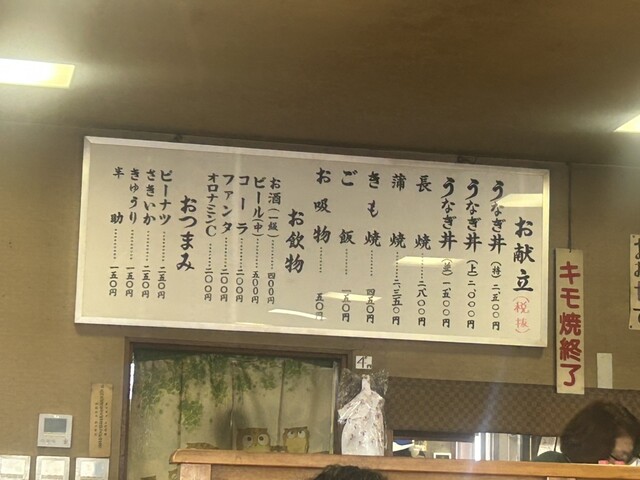 お献立(税抜)
うなぎ丼(特)二、五〇〇円
うなぎ丼(上)二、〇〇〇円
うなぎ丼(並)一、五〇〇円
長焼 二、八〇〇円
蒲焼 二、三五〇円
きも焼 四五〇円
ご飯 一五〇円
お吸物 五〇円
お飲物
お酒(一級)四〇〇円
ビール(中)五〇〇円
コーラ 二〇〇円
ファンタ 二〇〇円
オロナミンC 二〇〇円
おつまみ
ピーナツ 二五〇円
さきいか 二五〇円
きゅうり 一五〇円
半助 一五〇円
キモ焼終了